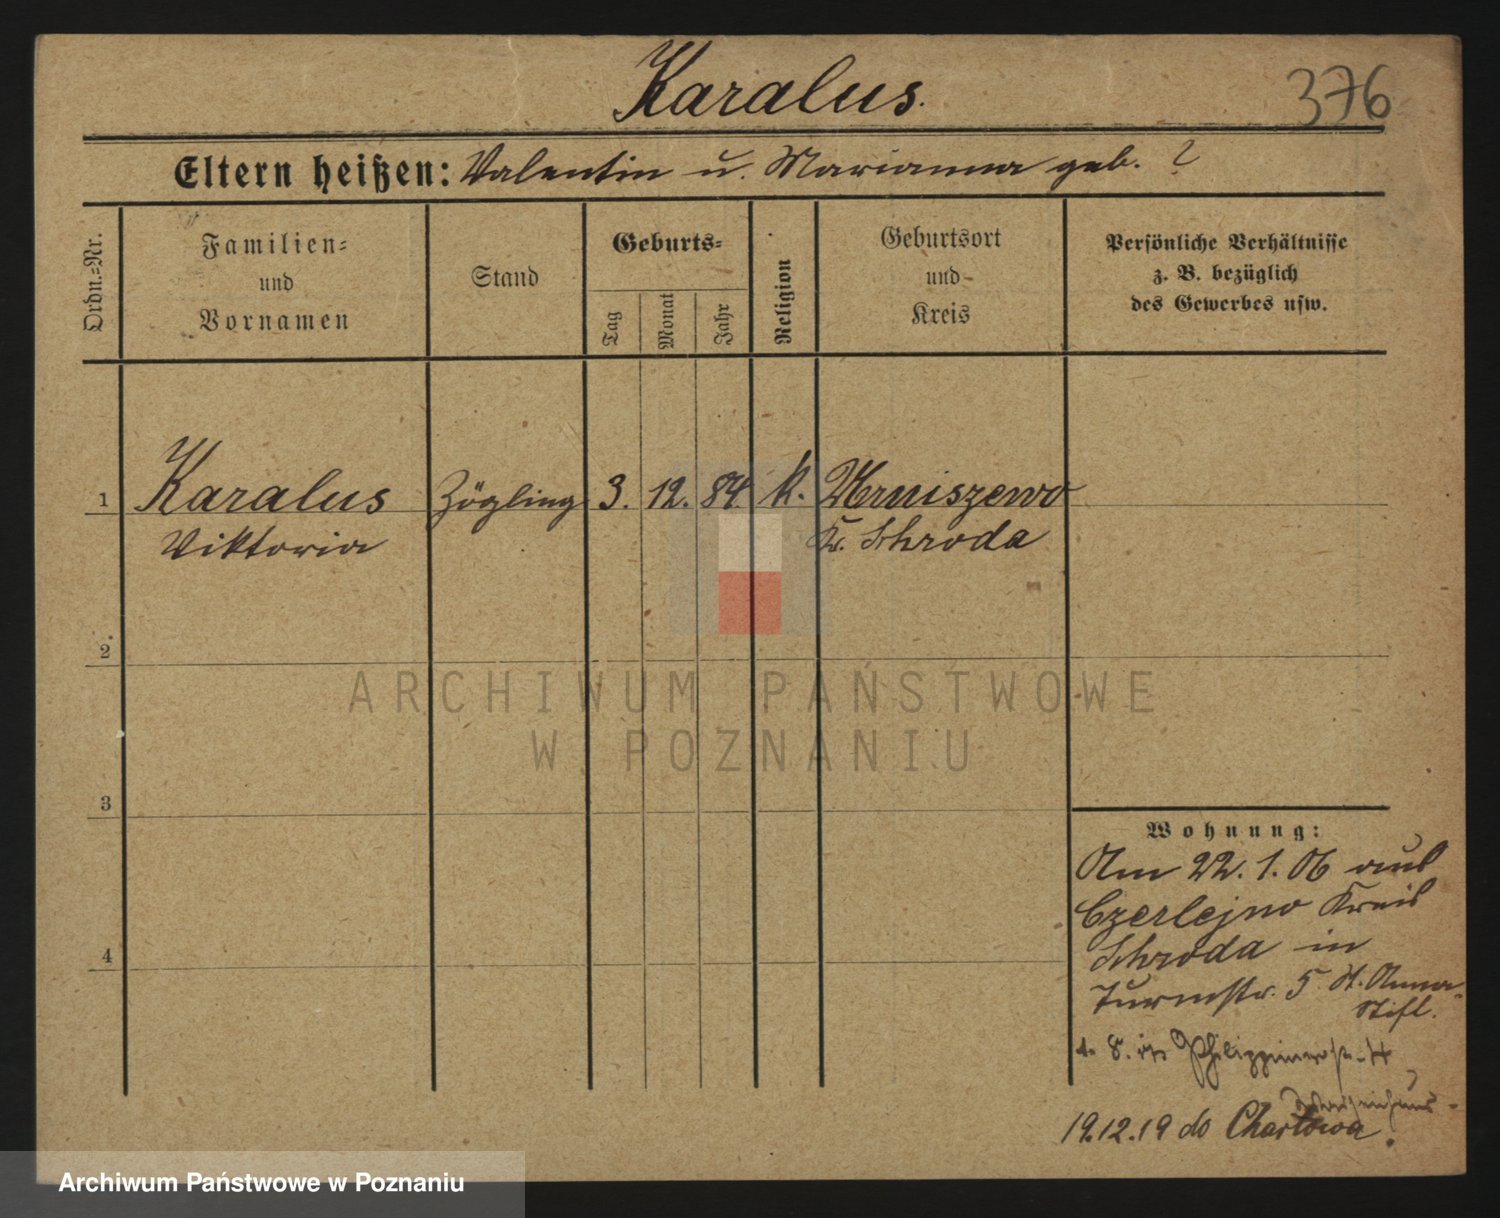 Karalus.
376
Eltern heißen: Valentin u. Marianna geb. ?
Ordn.=Nr.
Familien=
und
Vornamen
Stand
Geburts=
Tag
Monat
Jahr
Religion
Geburtsort
und
Kreis
Persönliche Verhältnisse
z. B. bezüglich
des Gewerbes usw.
1 Karalus Zögling 3. 12. 84. k. Mruiszewo
Viktoria Kr. Schroda
2
3
4
Wohnung:
Am 22. 1. 06 aus
Czerlejno Kreis
Schroda in
Turmstr. 5 St. Anna-
Stift.
Waisenhaus
19.12.19 do Chartowa.
ARCHIWUM PAŃSTWOWE
W POZNANIU
Archiwum Państwowe w Poznaniu